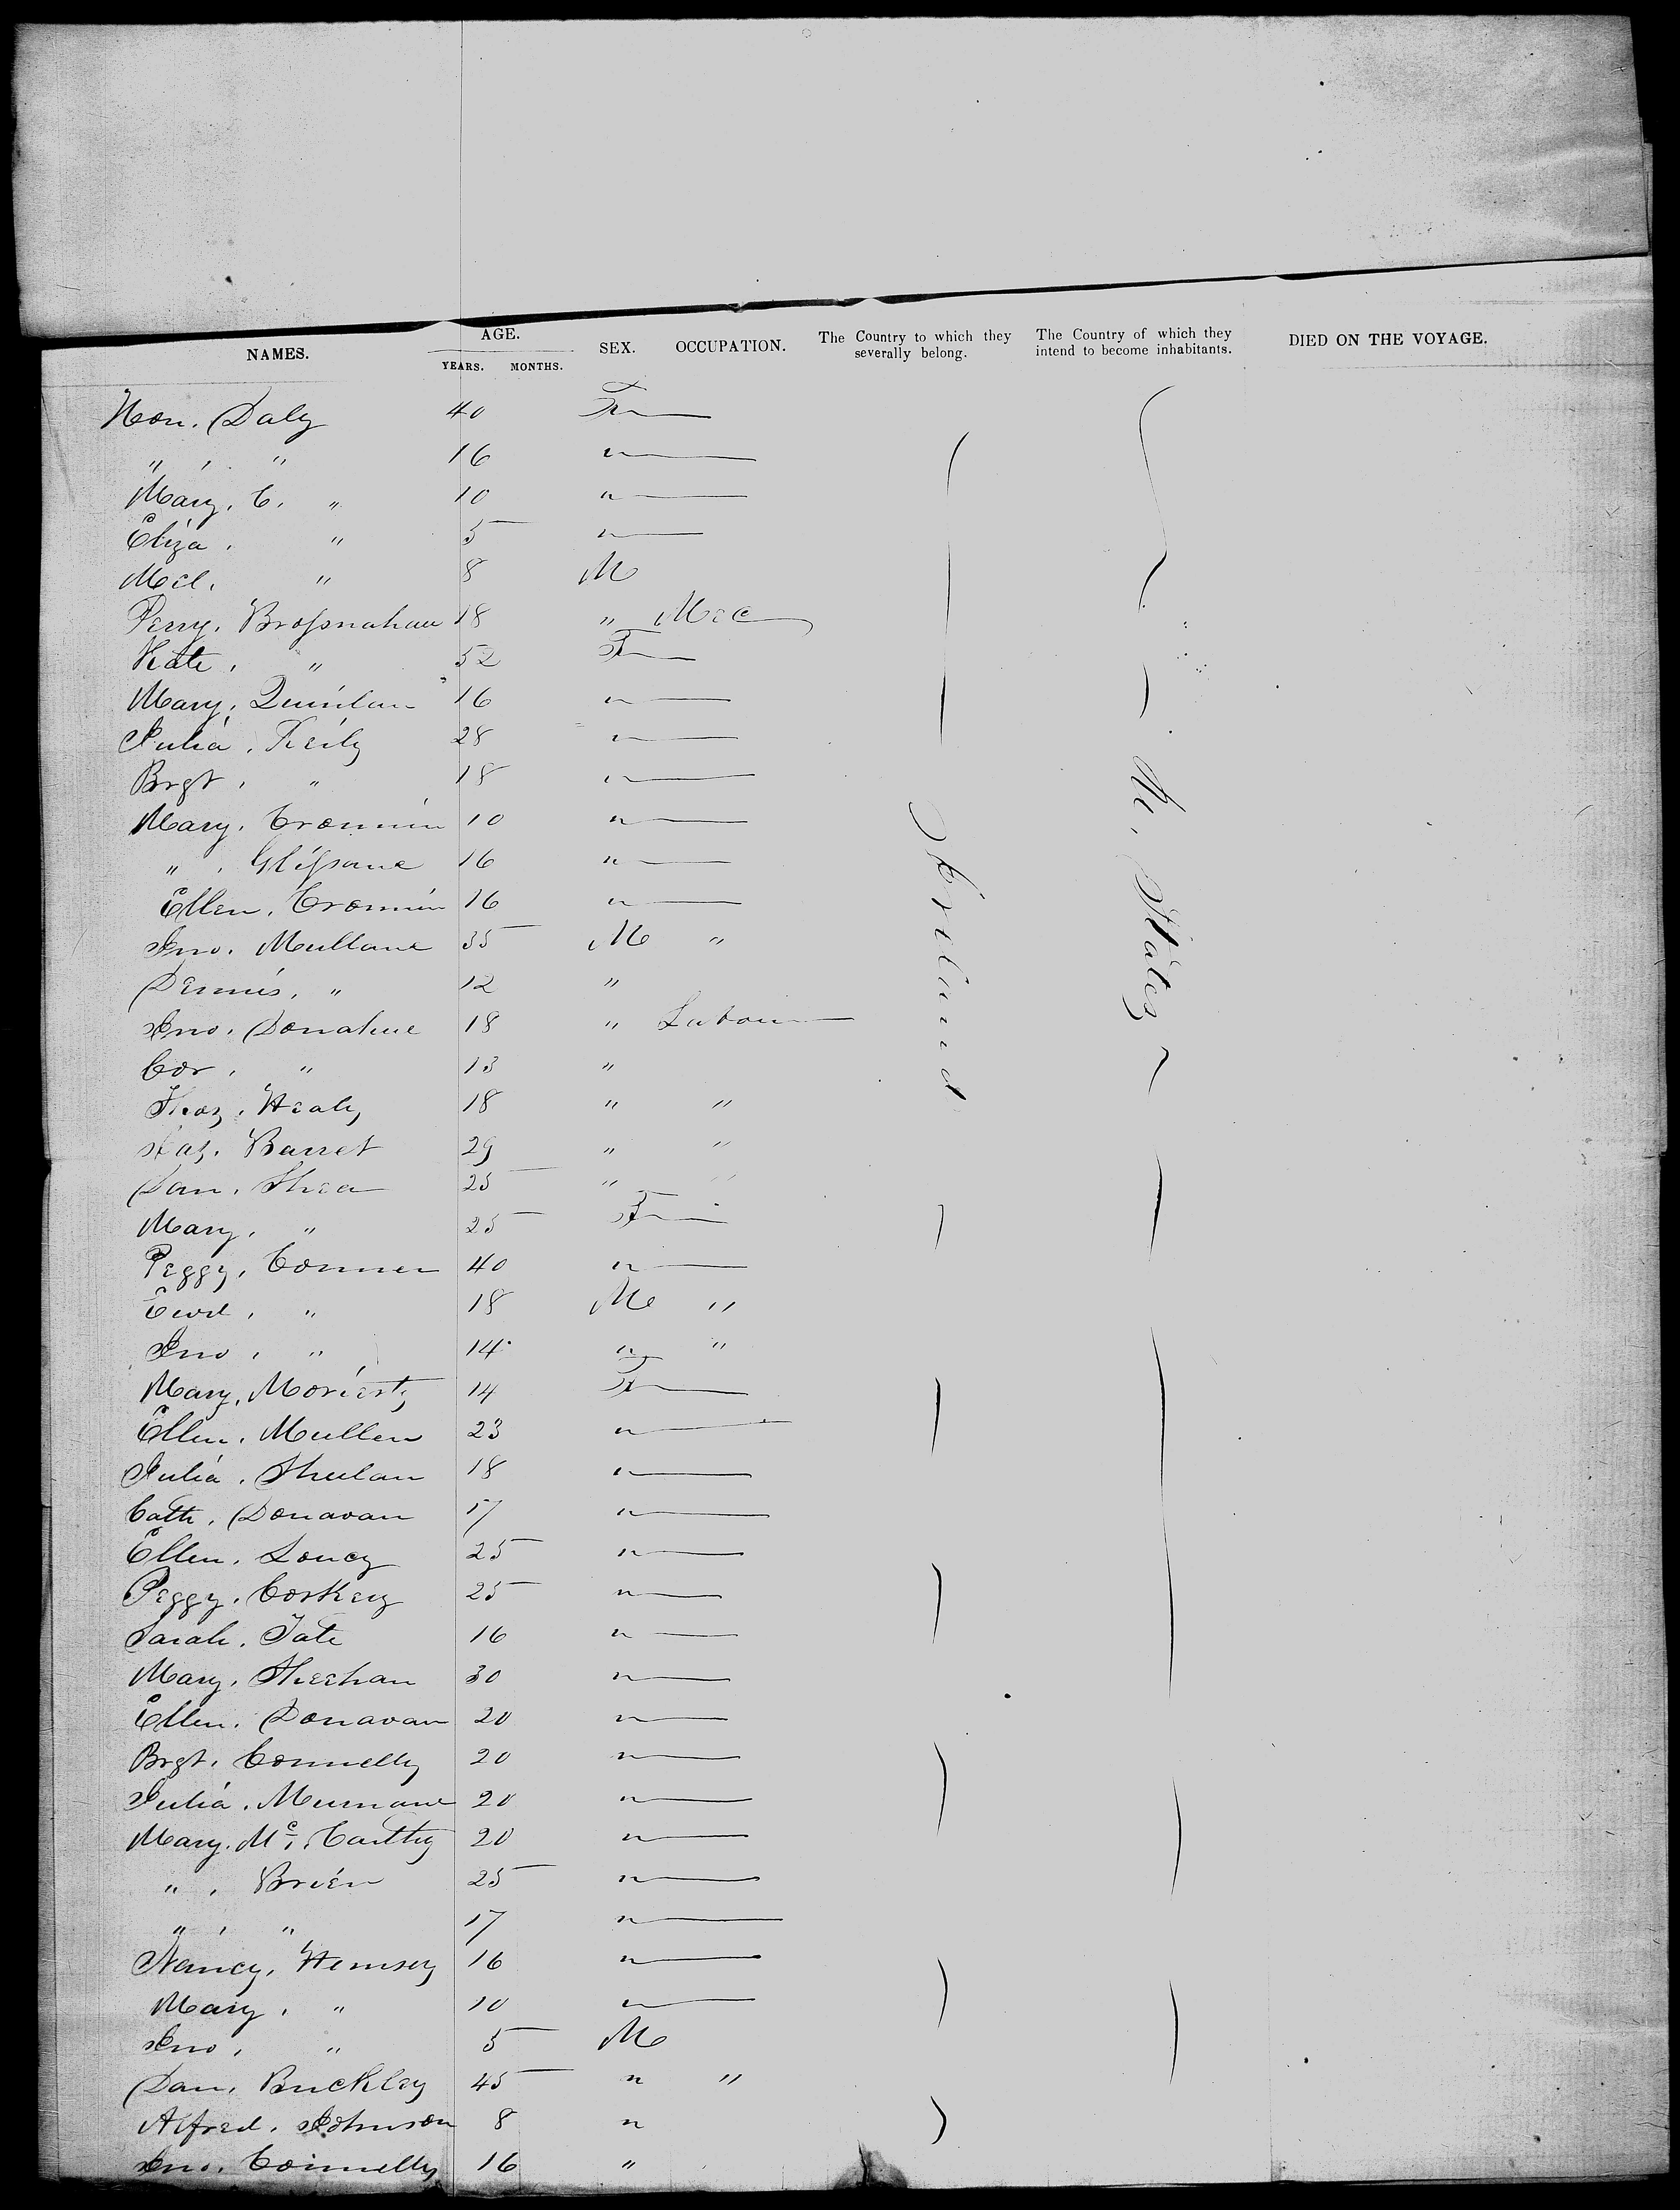 NAMES. AGE. YEARS. MONTHS. SEX. OCCUPATION. The Country to which they severally belong. The Country of which they intend to become inhabitants. DIED ON THE VOYAGE.
Hon. Daly 40 F
" , " 16 "
Mary. C. " 10 "
Eliza . " 5 "
Mcl. " 8 M
Perry. Brossnahan 18 " Mec
Kate , " 52 F
Mary. Quinlan 16 "
Julia . Keily 28 "
Brgt , " 18 "
Mary. Cronnin 10 "
" . Glissane 16 "
Ellen. Cronnin 16 "
Jno. Mullane 35 M "
Dennis. " 12 "
Jno. Donahue 18 " Labour
Cor , " 13 "
Thos. Healy 18 " "
Jas. Barret 29 " "
Dan. Shea 25 " "
Mary. " 25 F
Peggy. Conner 40 "
Ewd , " 18 M "
Jno , " 14 " "
Mary. Moriarty 14 F
Ellen. Mullen 23 "
Julia . Sheelan 18 "
Cath. Donavan 17 "
Ellen. Loucy 25 "
Peggy. Corkery 25 "
Sarah. Tate 16 "
Mary. Sheehan 30 "
Ellen. Donavan 20 "
Brgt. Connelly 20 "
Julia . Murnane 20 "
Mary. Mc. Carthy 20 "
" , Brien 25 "
" , " 17 "
Nancy. Hemsey 16 "
Mary , " 10 "
Jno , " 5 M
Dan. Buckley 45 " "
Alfred. Johnson 8 "
Jno. Connelly 16 "
Ireland
U. States